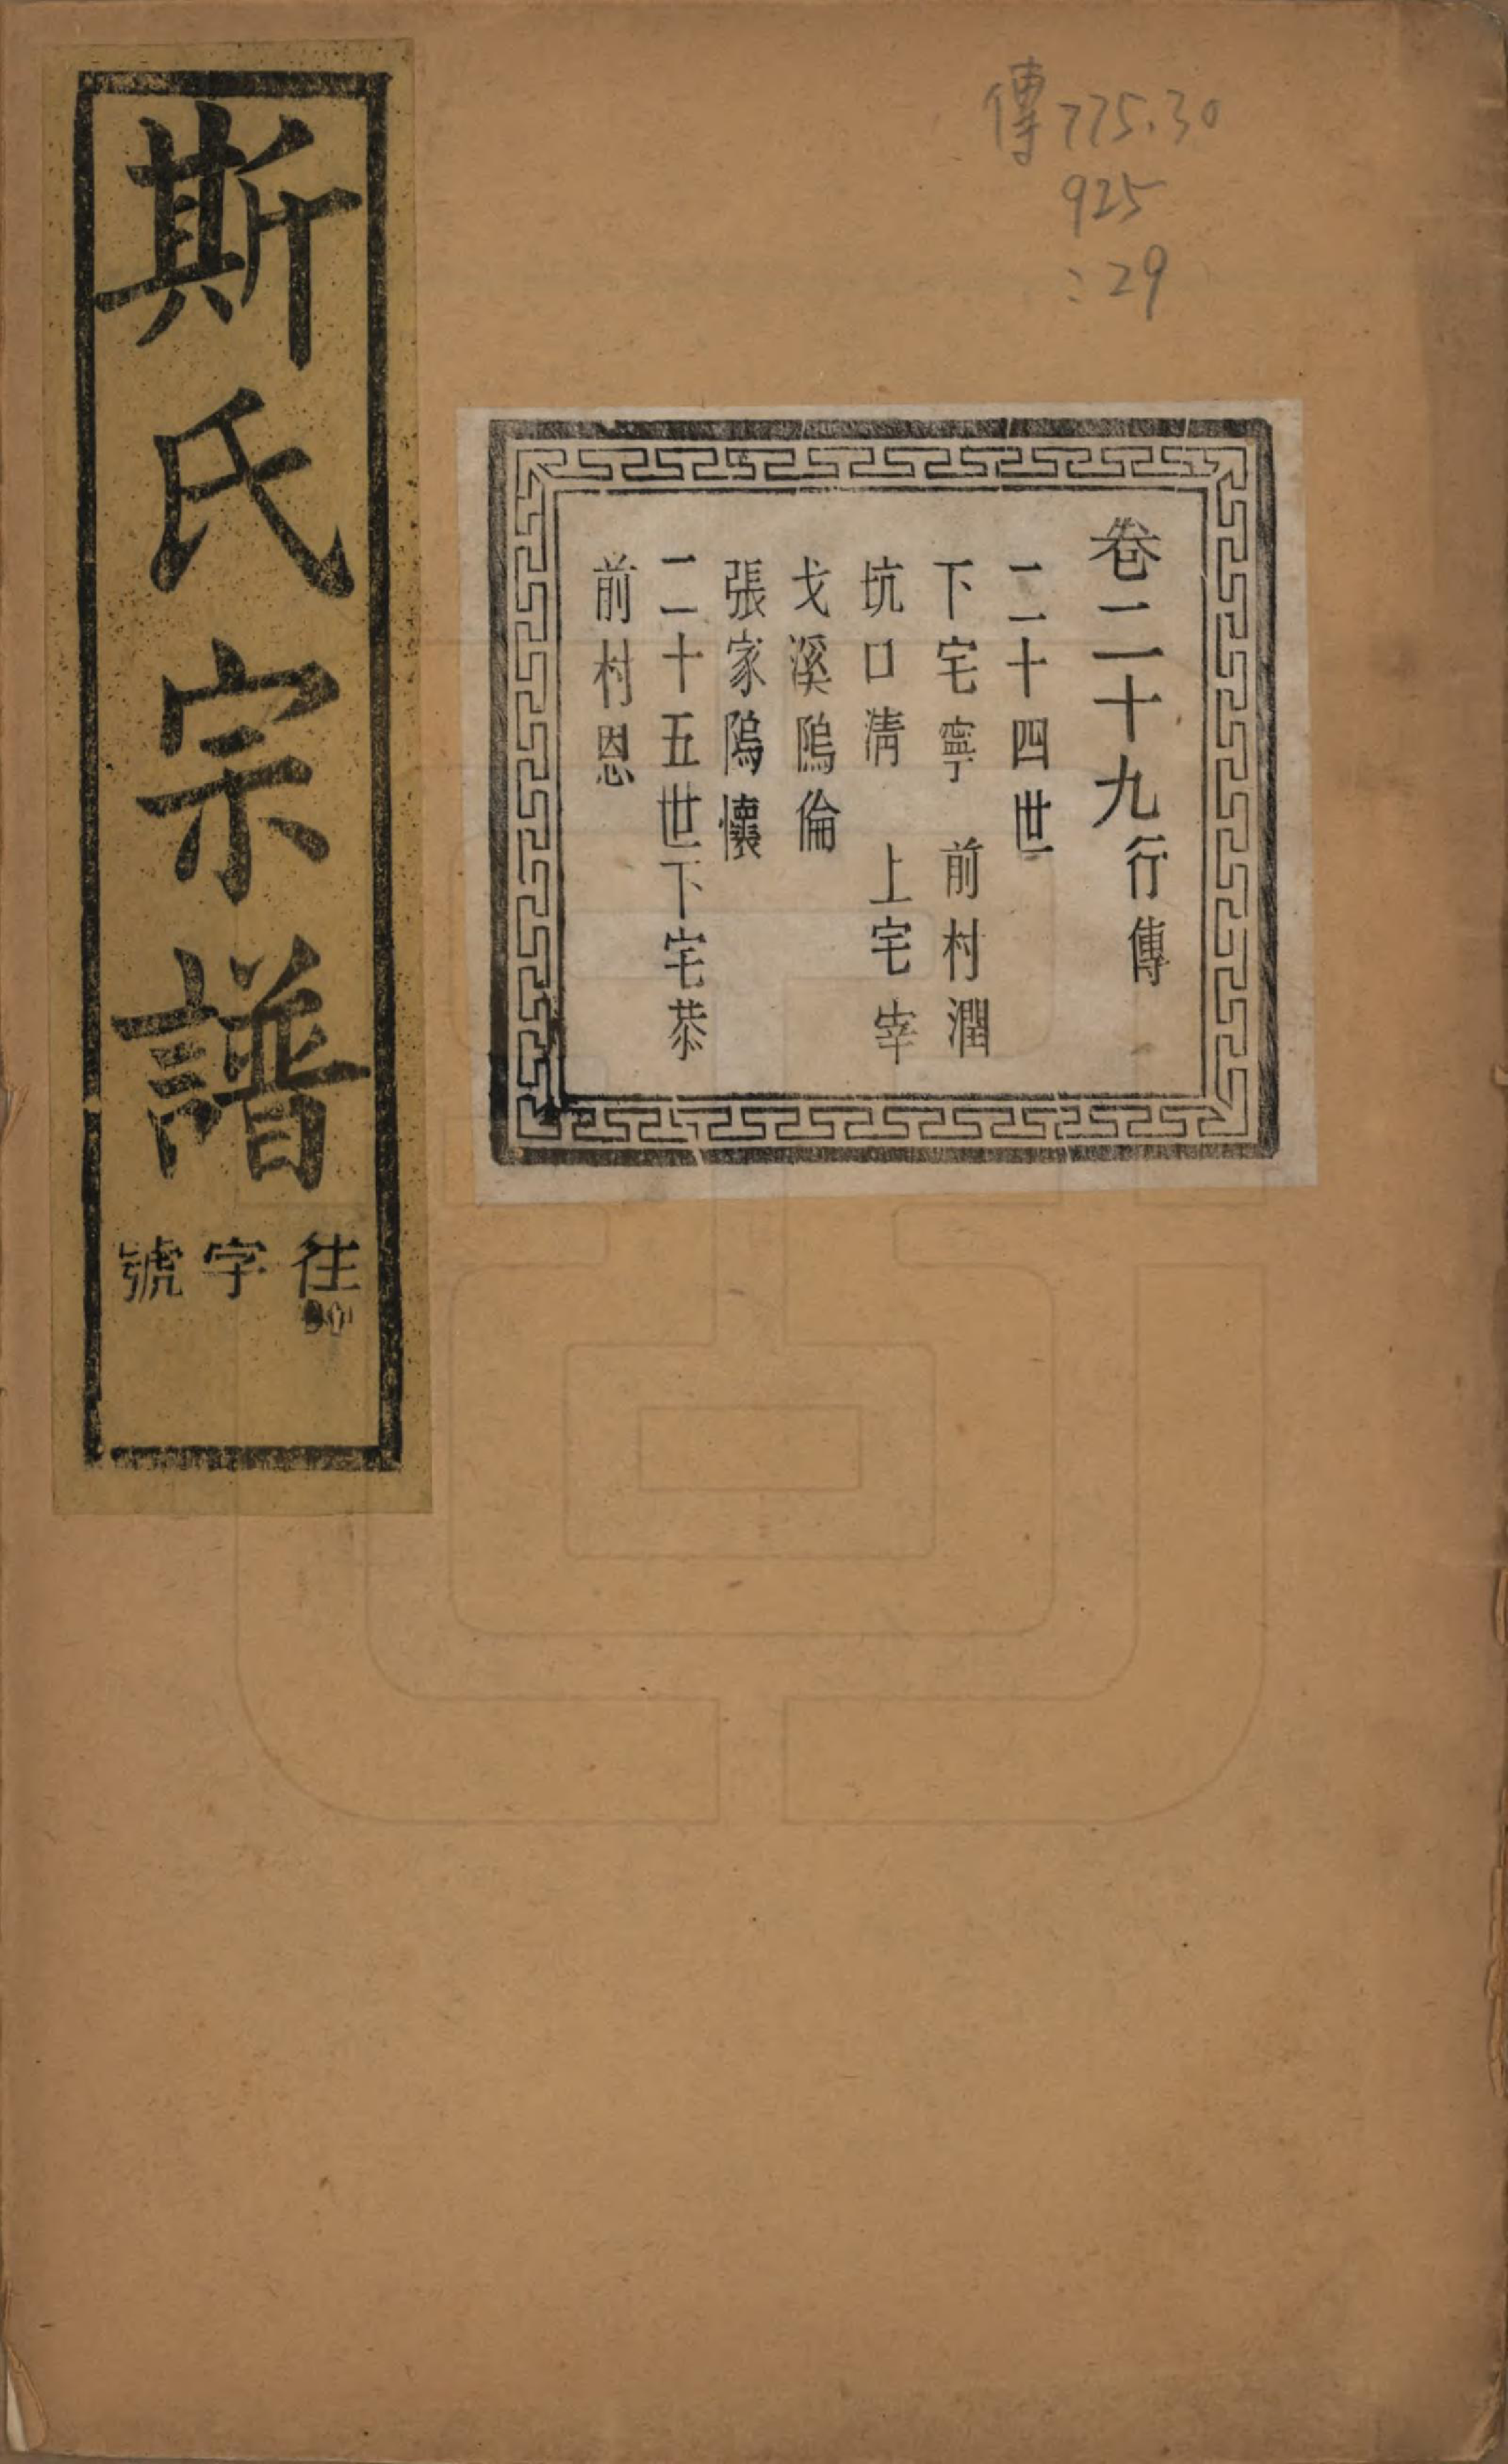 傳775.30
925
:29
斯氏宗譜
往字號
卷二十九行傳
二十四世
下宅寧 前村潤
坑口清 上宅宰
戈溪隖倫
張家隖懷
二十五世下宅恭
前村恩